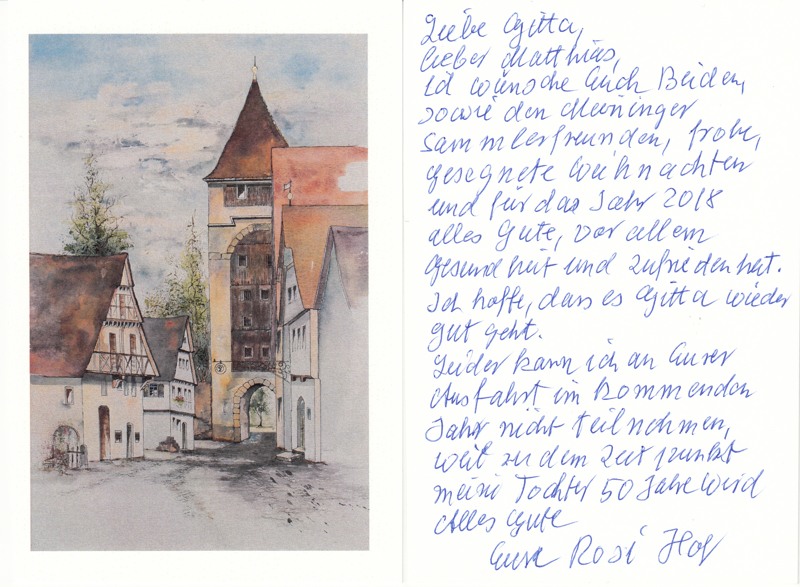 Liebe Gitta,
lieber Matthias,
ich wünsche Euch Beiden,
sowie den Meininger
Sammlerfreunden, frohe,
gesegnete Weihnachten
und für das Jahr 2018
alles Gute, vor allem
Gesundheit und Zufriedenheit.
Ich hoffe, dass es Gitta wieder
gut geht.
Leider kann ich an Eurer
Ausfahrt im kommenden
Jahr nicht teilnehmen,
weil zu dem Zeitpunkt
meine Tochter 50 Jahre wird
Alles Gute
Eure Rosi